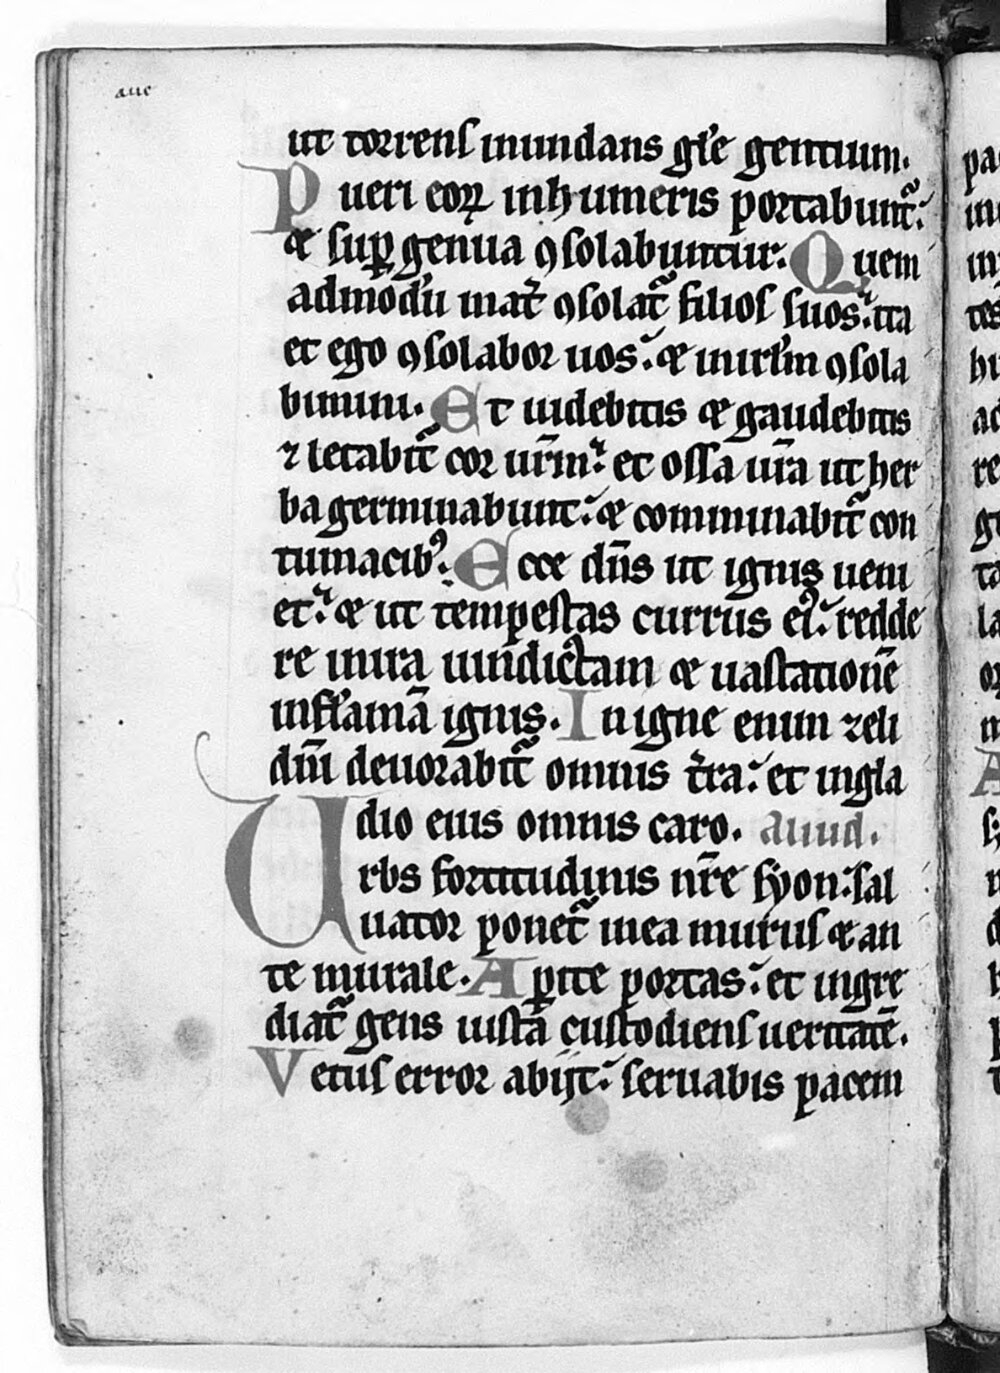 aue
ut torrens inundans gl̄e gentium.
Pueri eoꝝ in humeris portabunt᷑:
⁊ suꝑ genua ꝯsolabuntur. Quem
admodū mat̄ ꝯsolat᷑ filios suos: ita
et ego ꝯsolabor uos: ⁊ in irl̄m ꝯsola
bimini. Et uidebitis ⁊ gaudebitis
⁊ letabit᷑ cor ur̄m: et ossa ur̄a ut her
ba germinabunt: ⁊ comminabit᷑ con
tumacib᷒. Ecce dn̄s ut ignis ueni
et: ⁊ ut tempestas currus ei᷒: redde
re in ira uindictam ⁊ uastationē
in flāma ignis. In igne enim zeli
dn̄i deuorabit᷑ omnis t̄ra: et in gla
dio eius omnis caro. aliud.
Urbs fortitudinis nr̄e syon: sal
uator ponet᷑ in ea murus ⁊ an
te murale. Aꝑite portas: et ingre
diat᷑ gens iusta custodiens ueritatē.
Vetus error abijt: seruabis pacem